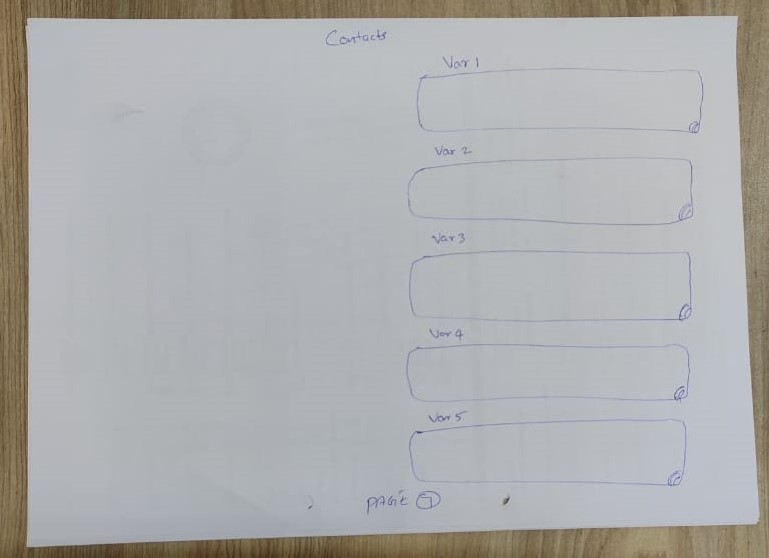 Contacts
Var 1
Var 2
Var 3
Var 4
Var 5
PAGE 7